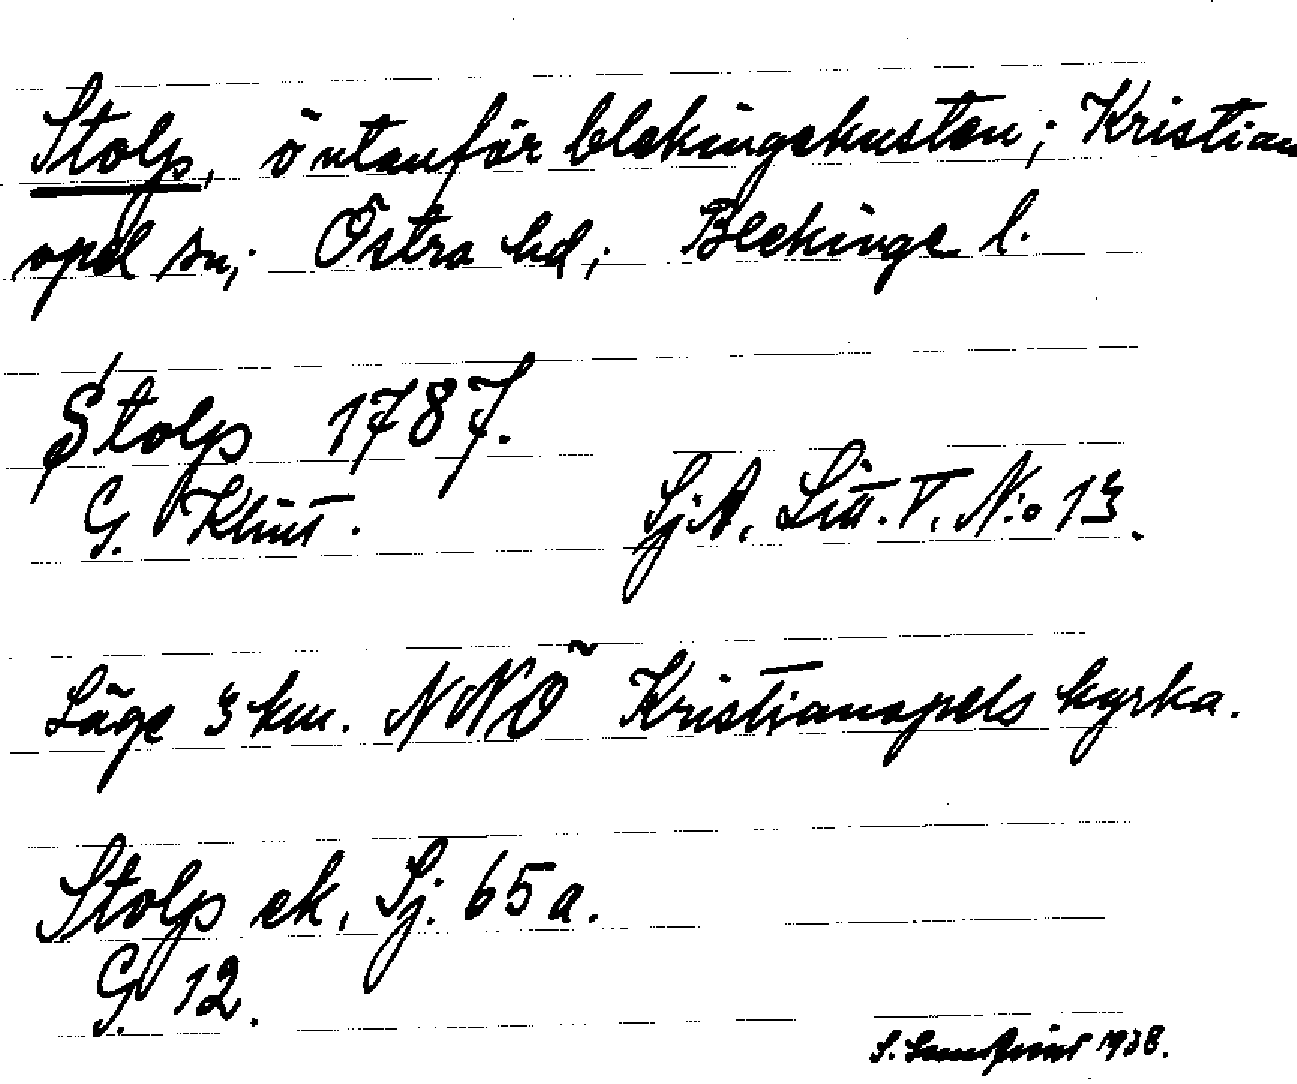 Stolp, ö utanför blekingekusten; Kristian
opel sn; Östra hd; Blekinge l.
Stolp 1787.
G. Klint. Sj.A. Litt. V. N:o 13.
Läge 3 km. NNÖ Kristianopels kyrka.
Stolp ek. Sj. 65 a.
G. 12.
S. 1938.